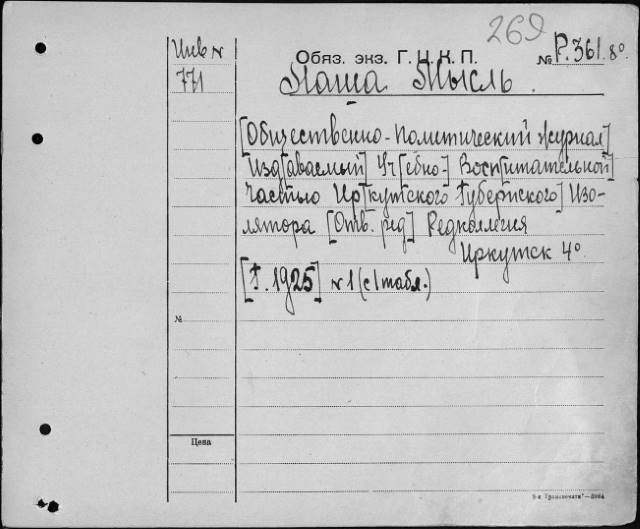 269
Инв №
771
Обяз. экз. Г. Ц. К. П.
№ Р.361.8°
Наша Мысль.
[Общественно-политический журнал]
Изд[аваемый] Уч[ебно-] Восп[итательной]
Частью Ир[кутского Губернского] Изо-
лятора [Отв. ред] Редколлегия
Иркутск 4°
[Г. 1925] №1 (с 1 табл.)
№
Цена